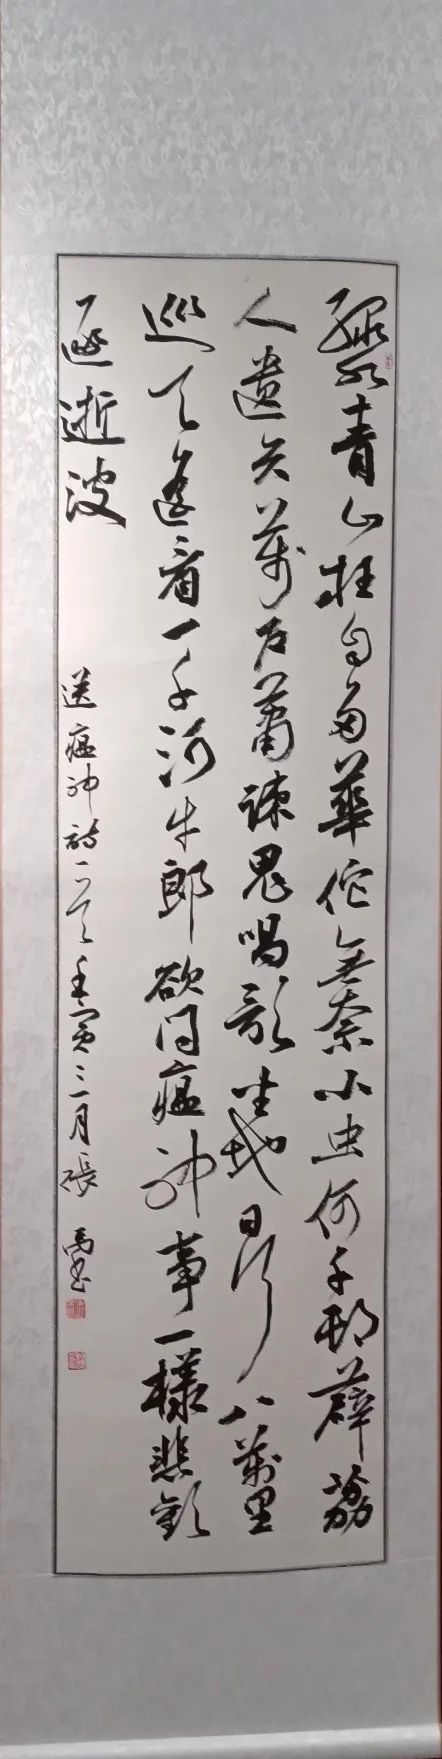 綠水青山枉自多華佗無奈小虫何千邨薜荔
人遺矢萬户蕭疎鬼唱歌坐地日行八萬里
巡天遥看一千河牛郎欲问瘟神事一樣悲歡
逐逝波
送瘟神詩一首壬寅三月張